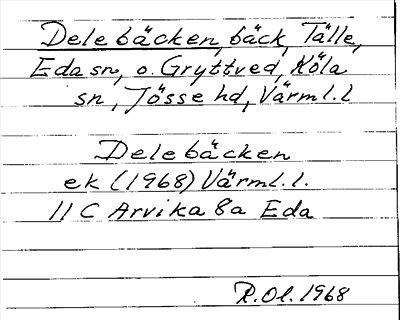 Delebäcken, bäck, Tälle,
Eda sn, o. Gryttved, Köla
sn, Jösse hd, Värml. l
Delebäcken
ek (1968) Värml. l.
11 C Arvika 8a Eda
R. Ol. 1968